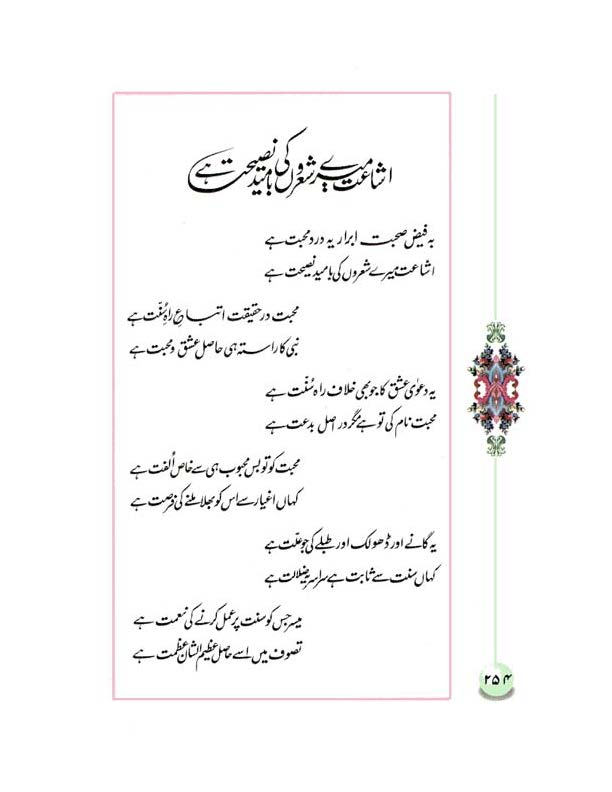 اشاعت میرے شعروں کی بامید نصیحت ہے
بہ فیض صحبت ابرار یہ درد محبت ہے
اشاعت میرے شعروں کی بامید نصیحت ہے
محبت در حقیقت اتباعِ راہِ سُنّت ہے
نبی کا راستہ ہی حاصل عشق و محبت ہے
یہ دعوٰی عشق کا جو بھی خلاف راہ سُنّت ہے
محبت نام کی تو ہے مگر در اصل بدعت ہے
محبت کو تو بس محبوب ہی سے خاص اُلفت ہے
کہاں اغیار سے اس کو بھلا ملنے کی فرصت ہے
یہ گانے اور ڈھولک اور طبلے کی جو علّت ہے
کہاں سنت سے ثابت ہے سراسر یہ ضلالت ہے
میسر جس کو سنت پر عمل کرنے کی نعمت ہے
تصوف میں اسے حاصل عظیم الشان عظمت ہے
۲۵۴